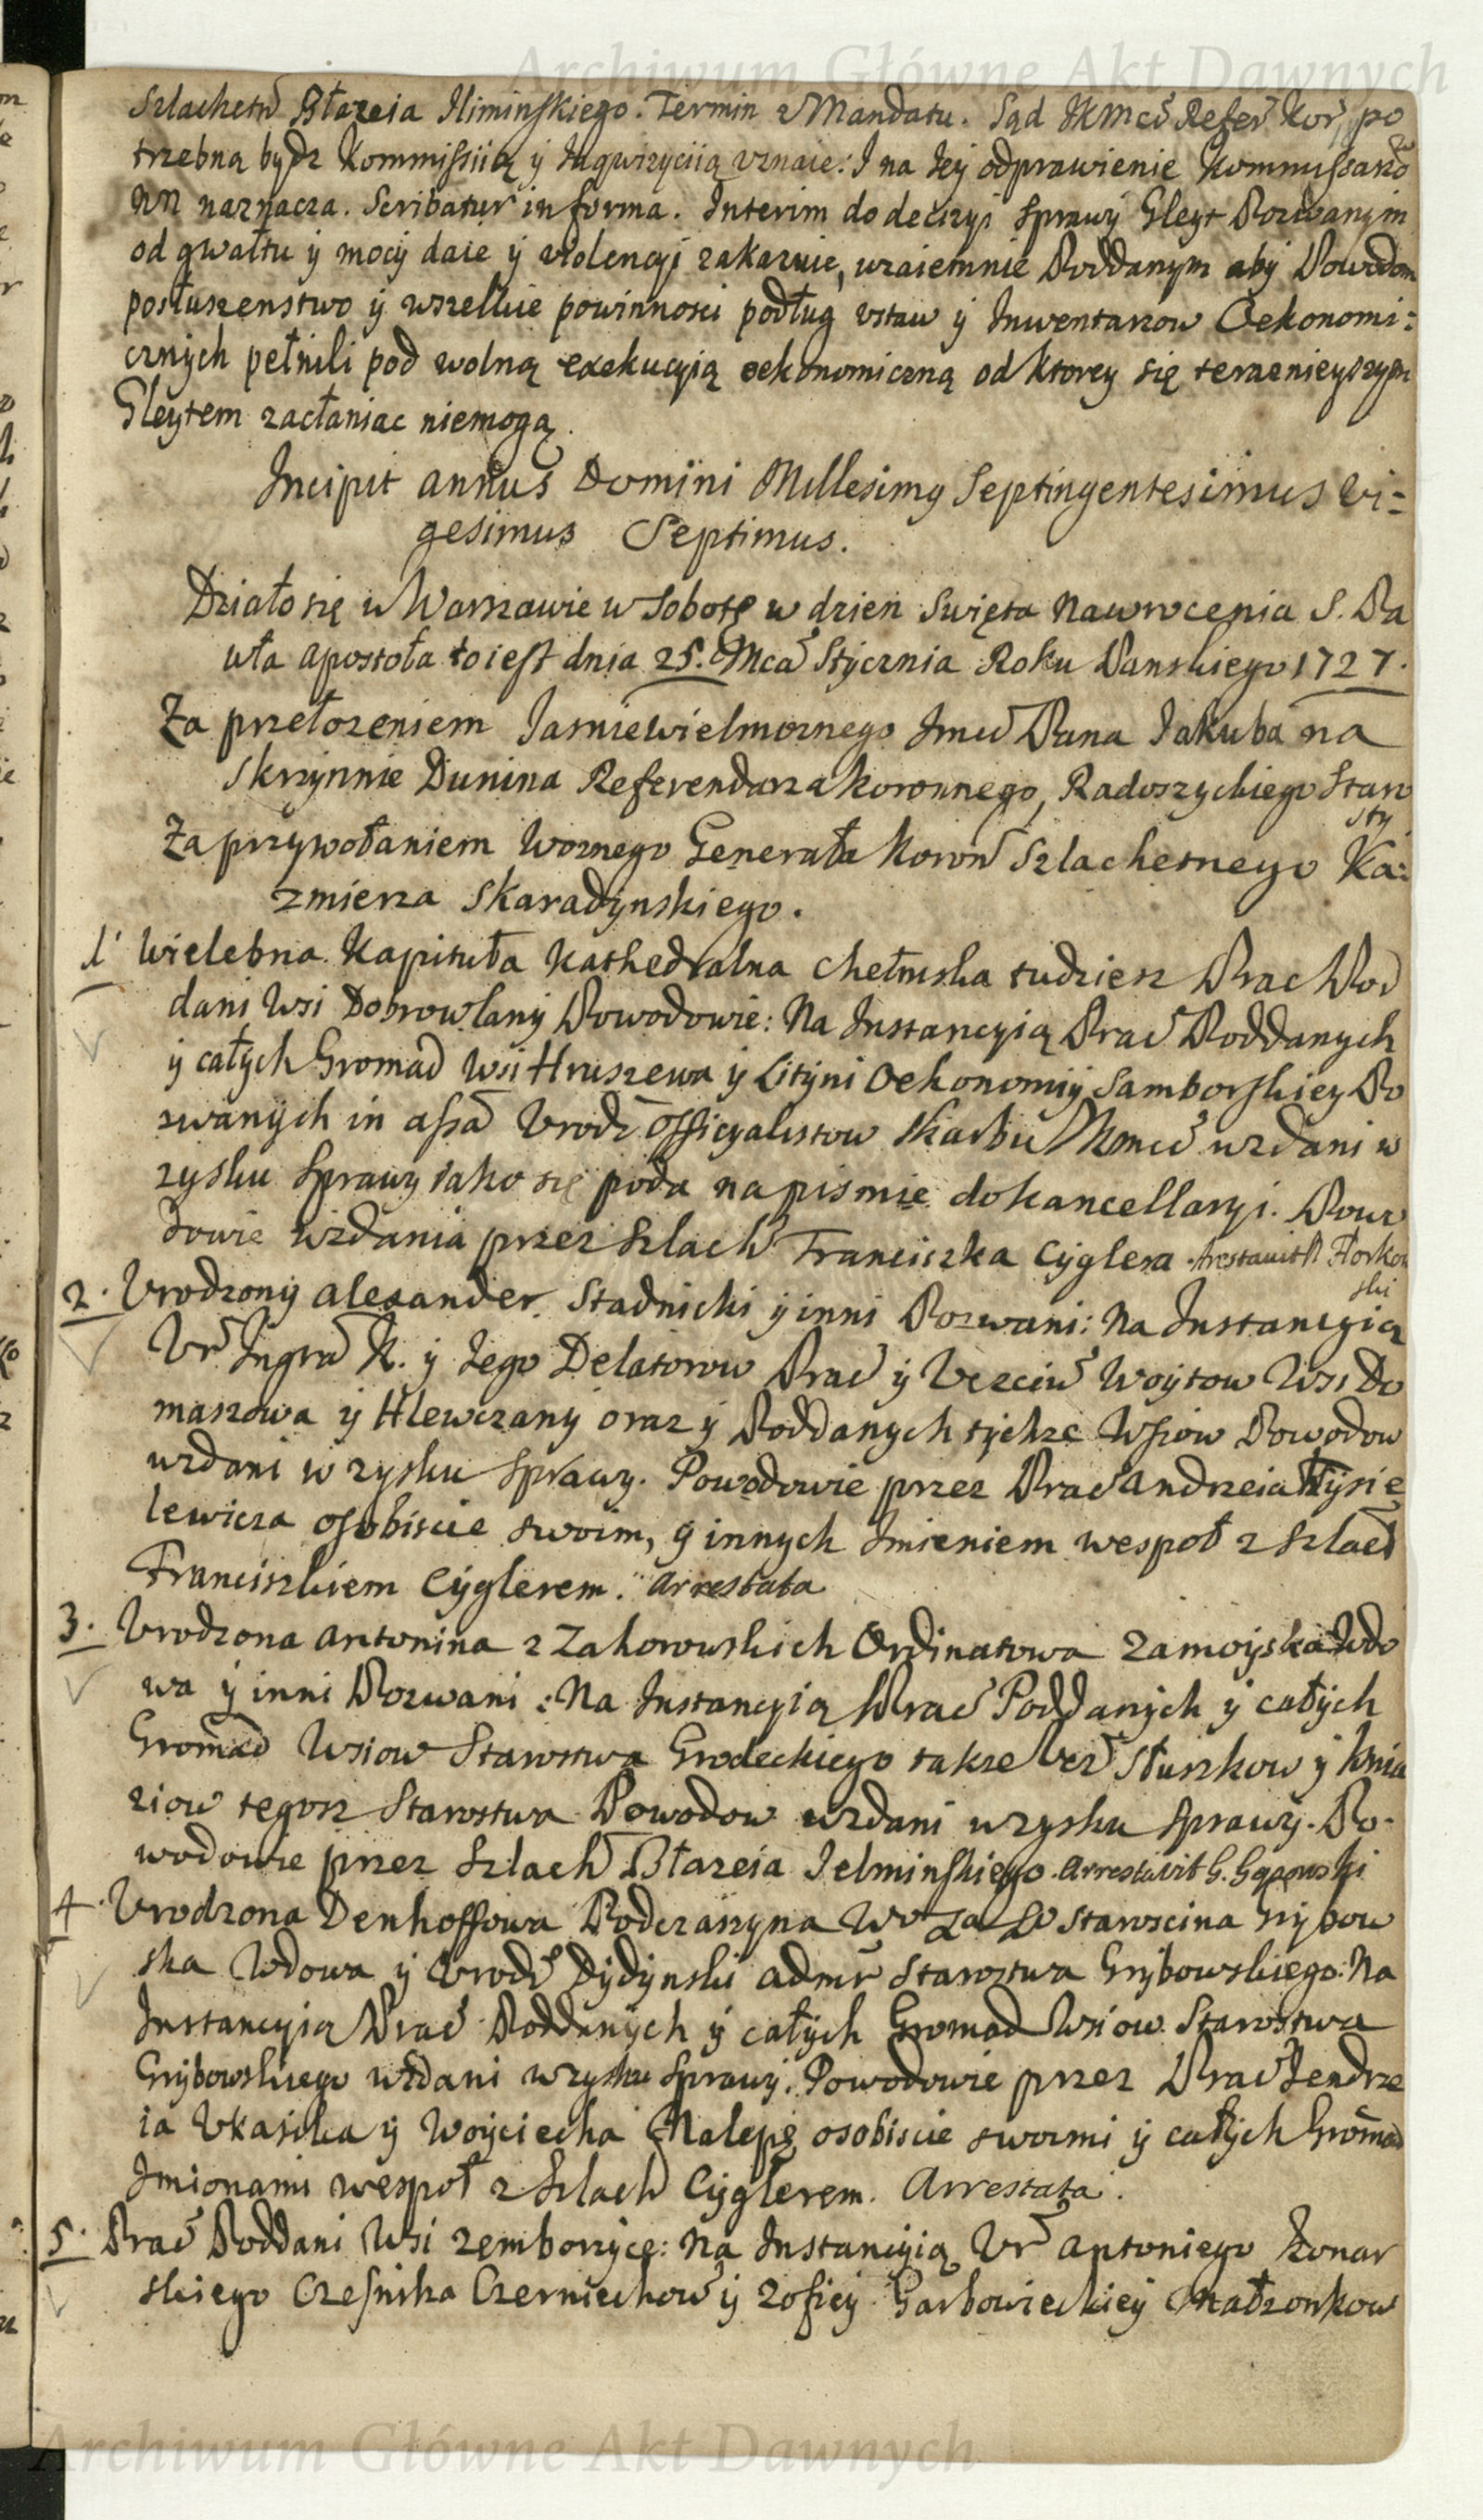 Archiwum Główne Akt Dawnych
Szlachetn Błazeia Iliminskiego. Termin z Mandatu. Sąd JKMci Refer Kor po
trzebną bydz Kommissiią y Inqwizyciią vznaie: I na Iey odprawienie Kommissarzo
NN naznacza. Scribatur in forma. Interim do decizyi sprawy Gleyt Pozwanym
od gwałtu y mocy daie y violencyi zakazuie, wzaiemnie Poddanym aby Powodom
posłuszenstwo y wszelkie powinnosci podług vstaw y Inwentarzow Oekonomi:
cznych pełnili pod wolną exekucyią oekonomiczną od ktorey się teraznieyszym
Gleytem zacłaniac niemogą.
Incipit annus Domini Millesimg Septingentesimus Vi:
gesimus Septimus.
Działo się w Warszawie w Sobotę w dzien Swięta Nawrocenia S. Pa
wła Apostoła to iest dnia 25. Mca Stycznia Roku Panskiego 1727.
Za przełozeniem Jasnie Wielmoznego Jmci Pana Jakuba na
Skrzynnie Dunina Referendarza koronnego, Radoszyckiego Staro
sty
Za przywołaniem Woznego Generała Koron Szlachetnego Ka:
zmierza Skaradynskiego.
1. Wielebna Kapituła Kathedralna Chełmska tudziesz Prac Pod
dani Wsi Dobrowlany Powodowie: Na Instancyią Prac Poddanych
y całych Gromad Wsi Hruszewa y Lityni Oekonomiy Samborskiey Po
zwanych in assa Vrodz Officyalistow Skarbu JKomci wzdani w
zysku sprawy iako się poda na pismie do kancellaryi. Powo
dowie wzdania przez Szlach Franciszka Cyglera. Arestavit Florkow
ski
2. Vrodzony Alexander Stadnicki y inni Pozwani: Na Instancyią
Vr Ingra N. y Iego Delatorow Prac y Vczciw Woytow Wsi Do
maszowa y Hlewczany oraz y Poddanych tychze Wsiow Powodow
wzdani w zysku sprawy. Powodowie przez Prac Andrzeia Kysie
lewicza osobiscie swoim, y innych Imieniem wespoł z Szlach
Franciszkiem Cyglerem. Arrestata
3. Vrodzona Antonina z Zahorowskich Ordinatowa Zamoyska Wdo
wa y inni Pozwani: Na Instancyią Prac Poddanych y całych
Gromad Wsiow Starostwa Grodeckiego takze Vcz Słuszkow y Knia
ziow tegosz Starostwa Powodow wzdani w zysku sprawy. Po-
wodowie przez Szlach Błazeia Jelminskiego. Arrestavit G.
4. Vrodzona Denhoffowa Podczaszyna Starościna Grybow
ska Wdowa y Vrodz Dydynski Admr Starostwa Grybowskiego: Na
Instancyią Prac Poddanych y całych Gromad Wsiow Starostwa
Grybowskiego wzdani w zysku sprawy. Powodowie przez Prac Jendrze
ia Vkasika y Woyciecha Malepę osobiscie swoimi y całych Gromad
Imionami wespoł z Szlach Cyglerem. Arrestata.
5. Prac Poddani Wsi Zemborzyce: Na Instancyią Vr Antoniego Konar
skiego Czesnika Czerniechow y Zofiey Garbowieckiey Małzonkow
Archiwum Główne Akt Dawnych